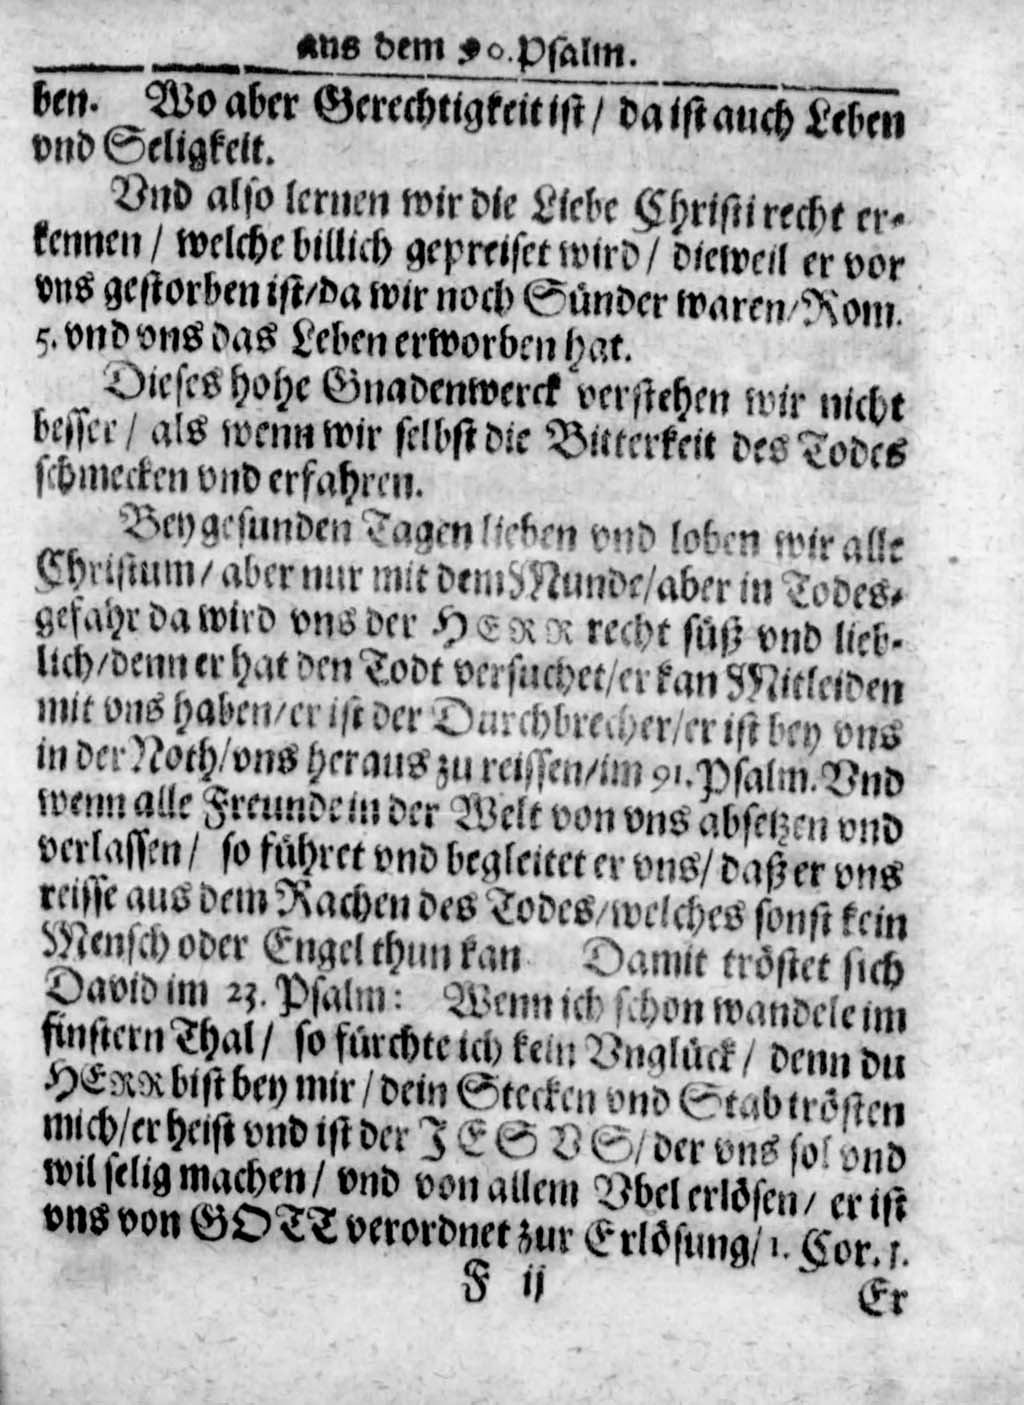 aus dem 90. Psalm.
ben. Wo aber Gerechtigkeit ist / da ist auch Leben
vnd Seligkeit.
Vnd also lernen wir die Liebe Christi recht er-
kennen / welche billich gepreiset wird / dieweil er vor
vns gestorben ist/da wir noch Sünder waren/Rom.
5. vnd vns das Leben erworben hat.
Dieses hohe Gnadenwerck verstehen wir nicht
besser / als wenn wir selbst die Bitterkeit des Todes
schmecken vnd erfahren.
Bey gesunden Tagen lieben vnd loben wir alle
Christum / aber nur mit dem Munde/aber in Todes-
gefahr da wird vns der HERR recht süß vnd lieb-
lich/denn er hat den Todt versuchet/er kan Mitleiden
mit vns haben/er ist der Durchbrecher/er ist bey vns
in der Noth/vns heraus zu reissen/im 91. Psalm. Vnd
wenn alle Freunde in der Welt von vns absetzen vnd
verlassen / so führet vnd begleitet er vns/ daß er vns
reisse aus dem Rachen des Todes/welches sonst kein
Mensch oder Engel thun kan Damit tröstet sich
David im 23. Psalm: Wenn ich schon wandele im
finstern Thal / so fürchte ich kein Vnglück / denn du
HERR bist bey mir / dein Stecken vnd Stab trösten
mich/er heist vnd ist der JESVS/ der vns sol vnd
wil selig machen / vnd von allem Vbel erlösen / er ist
vns von GOTT verordnet zur Erlösung/ 1. Cor. 1.
F ij
Er